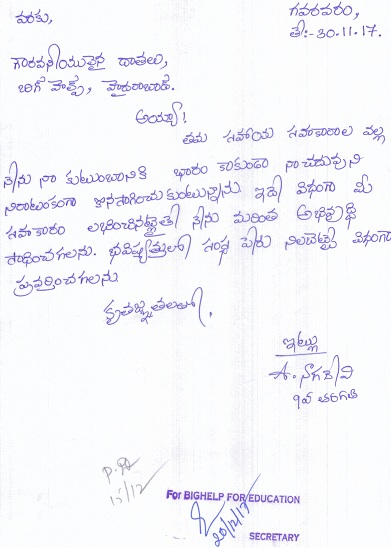 గవరవరం,
తే:-30.11.17.
వరకు,
గౌరవనీయులైన దాతలు,
బిగ్ హెల్ప్, హైదరాబాద్.
అయ్యా!
తమ సహాయ సహకారాల వల్ల
నేను నా కుటుంబానికి భారం కాకుండా నా చదువుని
నిరాటంకంగా కొనసాగించుకుంటున్నాను ఇదే విధంగా మీ
సహకారం లభించినట్లైతే నేను మరింత అభివృద్ధి
సాధించగలను. భవిష్యత్తులో సంస్థ పేరు నిలబెట్టే విధంగా
ప్రవర్తించగలను
కృతజ్ఞతలతో,
ఇట్లు
A. నాగదేవి
9వ తరగతి
15/12
For BIGHELP FOR EDUCATION
20/12/17
SECRETARY